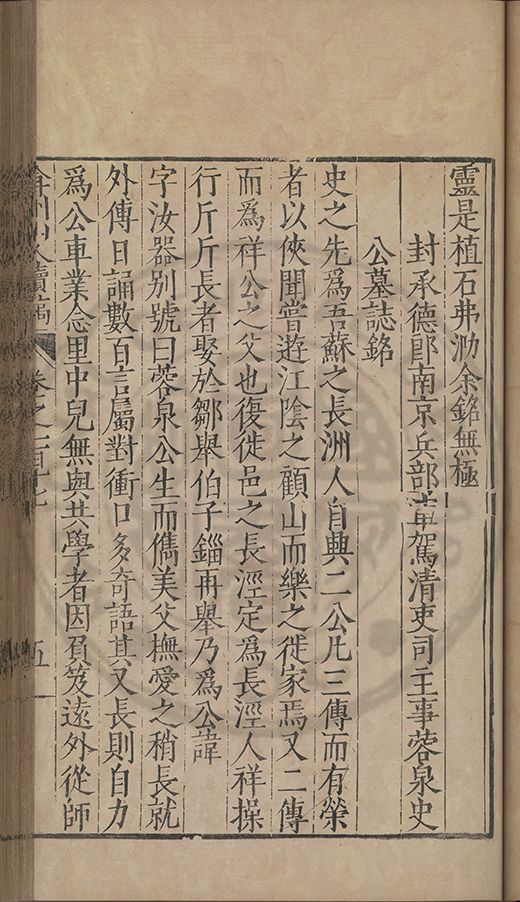 靈是植石弗泐余銘無極
封承德郎南京兵部車駕清吏司主事蓉泉史
公墓誌銘
史之先爲吾蘇之長洲人自興二公凡三傳而有榮
者以俠聞嘗遊江陰之顧山而樂之徙家焉又二傳
而爲祥公之父也復徙邑之長涇定爲長涇人祥操
行斤斤長者娶於鄒舉伯子錙再舉乃爲公諱
字汝器别號曰蓉泉公生而儁美父憮愛之稍長就
外傳日誦數百言屬對衝口多奇語其又長則自力
爲公車業念里中兒無與共學者因負笈遠外從師
弇州山人續稿 卷之一百十七 五